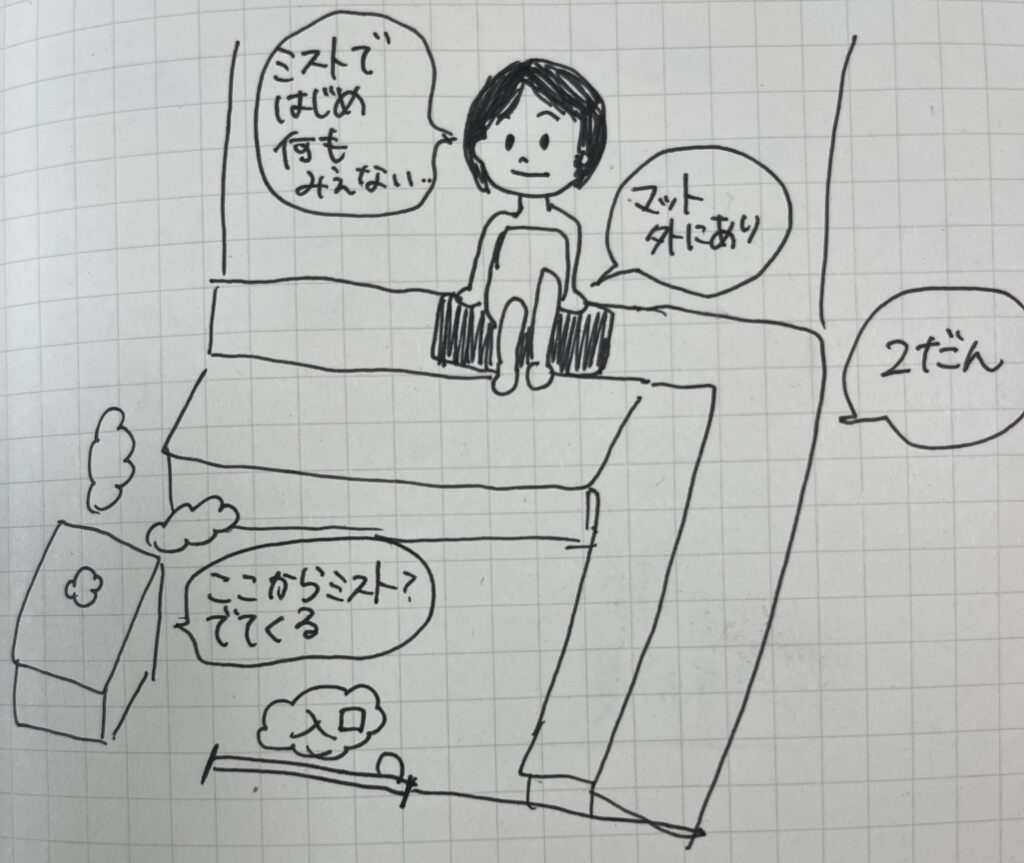 ミストで
はじめ
何も
みえない‥
マット
外にあり
2だん
ここからミスト?
でてくる
入口